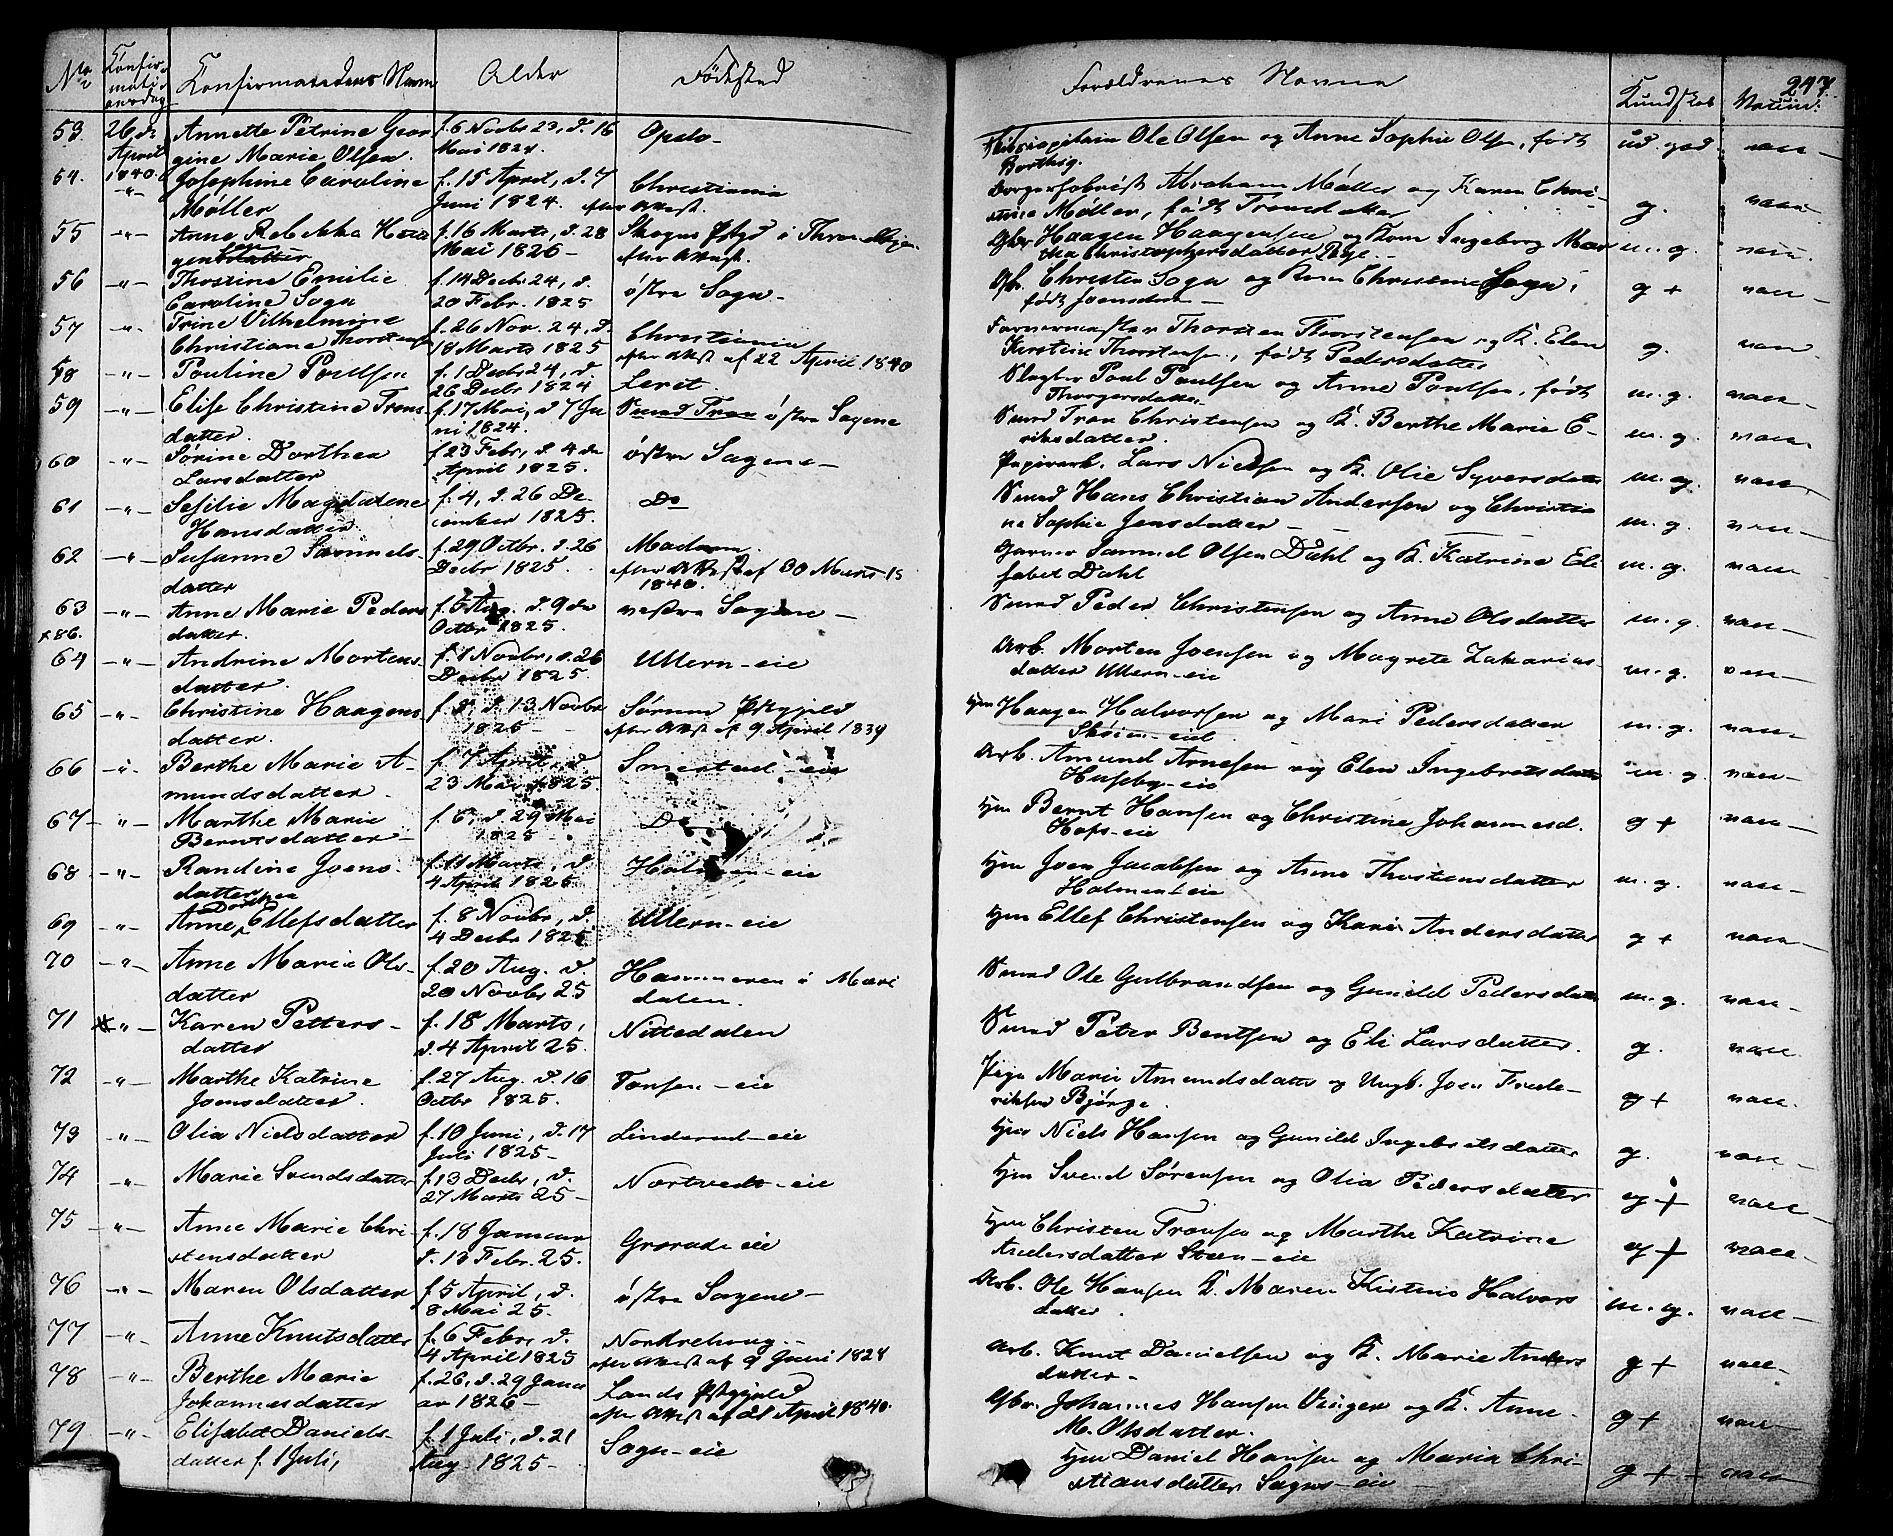 247.
No
Confir-
mati-
onsdag
Confirmatedens Navn
Alder
Födested
Forældrenes Navne
Kundskab
Vaccine.
53.
26de
April
1840.
Annette Petrine Geor
gine Marie Olsen.
f. 6 Novbr 23, d. 16
Mai 1824.
Opslo
Ole Olsen og Anne Sophie Olsen, født
ud. god
vacc
54.
-"-
Josephine Caroline
Møller
f. 15 April, d. 7
Juni 1824.
Christiania
efter Attest.
Abraham Møller og Karen Chri-
stine Møller, født
g.
vacc
55
-"-
Anne Rebekka Haa
gensdatter
f. 16 Marts, d. 28
Mai 1826
efter Attest.
Haagen Haagensen og Kone Ingeborg Mar
tha Christophersdatter
m. g.
vacc.
56
-"-
Thostine Emilie
Caroline Sogn
f. 14 Decbr 24, d.
20 Febr. 1825
østre Sogn
Christen Sogn og Kone Christine Sogn,
født Joensdatter
g +
vacc
57
-"-
Trine Vilhelmine
Christiane Thorstensen
f. 26 Nov. 24, d.
18 Marts 1825
Christiania
efter Attest af 22 April 1840
Thorsten Thorstensen og K. Elen
Kirstine Thorstensen, født Pedersdatter
g.
vacc
58
-"-
Pouline Poulsen
f. 1 Decbr 24, d.
26 Decbr 1824
Slagter Poul Poulsen og Anne Poulsen, født
Thorgersdatter
m. g.
vacc
59
-"-
Elise Christine Trons
datter.
f. 17 Mai, d 7 Ju
ni 1824.
Smed Tron østre Sogene
Smed Tron Christensen og K. Berthe Marie E-
riksdatter.
m. g.
vacc
60
-"-
Sørine Dorthea
Larsdatter
f. 23 Febr, d. 4de
April 1825.
østre Sagene
Papirarb. Lars Nielsen og K. Olie Syversdatter
m. g.
vacc
61
-"-
Sesilie Magdalene
Hansdatter
f. 4, d. 26 De-
cember 1825.
Do
Smed Hans Christian Andersen og Christia
ne Sophie Jensdatter
m. g.
vacc
62
-"-
Susanne Samuels-
datter
f. 29 Octbr. d. 26
Decbr 1825.
efter Attest af 30 Marts
1840.
Garver Samuel Olsen Dahl og K. Katrine Eli
sabet Dahl
m. g.
vacc
63
+86.
-"-
Anne Marie Peders
datter.
f. 6 Aug. d. 9de
Octbr 1825.
vestre Sagene
Smed Peder Christensen og Anne Olsdatter
m. g.
vacc
64
-"-
Andrine Mortens-
datter.
f. 1 Novbr, d. 26
Decbr 1825.
Ullern-eie
Arb. Morten Joensen og Magrete Zakarias-
datter Ullern-eie
m. g.
vacc
65
-"-
Christine Haagens
datter.
f. 8, d. 13 Novbr
1825
Sørum
efter Attest af 9 April 1839
Hjm Haagen Halvorsen og Mari Pedersdatter
Skøien-eie
m. g.
vacc
66
-"-
Berthe Marie A-
mundsdatter.
f. 7 April, d.
23 Mai 1825.
Smestad-eie
Arb. Amund Arnesen og Elen Ingebretsdatter
Huseby-eie
m. g.
vacc
67
-"-
Marthe Marie
Berntsdatter
f. 6, d. 29 Mai
1825
Do
Hjm Bernt Hansen og Christine Johannesd.
Hofs-eie
g +
vacc
68
-"-
Randine Joens-
datter
f. 11 Marts, d.
4 April 1825.
Holmen-eie
Hjm Joen Jacobsen og Anne Thostensdatter
Holmen-eie
m. g.
vacc
69
-"-
Dorthea
Anne Ellefsdatter
f. 8 Novbr, d.
4 Decbr 1825
Ullern-eie
Hjm Ellef Christensen og Kari Andersdatter
g +
vacc
70
-"-
Anne Marie Ols-
datter
f. 20 Aug. d.
20 Novbr 25
Hammeren i Mari
dalen.
Smed Ole Gulbrandsen og Gunild Pedersdatter
m. g.
vacc
71
-"-
Karen Petters-
datter
f. 18 Marts,
d. 4 April 25.
Nittedalen
Smed Peter Bentsen og Eli Larsdatter.
g.
vacc.
72
-"-
Marthe Katrine
Joensdatter.
f. 27 Aug. d. 16
Octbr 1825.
Tonsen-eie
Pige Marie Amundsdatter og Ungk. Joen Frede-
riksen Bjørge.
g +
vacc.
73
-"-
Olia Nielsdatter
f. 10 Juni, d. 17
Juli 1825
Linderud-eie
Hjm Niels Hansen og Gunild Ingebretsdatter
g.
vacc
74
-"-
Marie Svendsdatter
f. 13 Decbr, d.
27 Marts 25
Nortvedt-eie
Hjm Svend Sørensen og Olia Pedersdatter
g +
vacc
75
-"-
Anne Marie Chri-
stensdatter
f. 18 Januar
d. 13 Febr. 25.
Grorud-eie
Hjm Christen Tronsen og Marthe Katrine
Andersdatter Steen-eie
g +
vacc
76
-"-
Maren Olsdatter
f. 5 April, d.
8 Mai 25.
østre Sagene
Arb. Ole Hansen K. Maren Kistine Halvors
datter.
m. g.
vacc
77
-"-
Anne Knutsdatter
f. 6 Febr, d.
4 April 1825
Nordrehoug
efter Attest af 9 Juni 1828
Arb. Knut Danielsen og K. Marie Anders
datter
g +
vacc
78
-"-
Berthe Marie
Johannesdatter
f. 26, d. 29 Janu
ar 1826
Lands
efter Attest af 21 April 1840.
Johannes Hansen Vinger og K. Anne
M. Olsdatter.
g +
vacc
79
-"-
Elisabet Daniels-
datter f. 1 Juli,
f. 1 Juli, d. 21
Aug. 1825
Sogn-eie
Hjm Daniel Hansen og Maria Chri-
stiansdatter Sogns-eie
g +
vacc